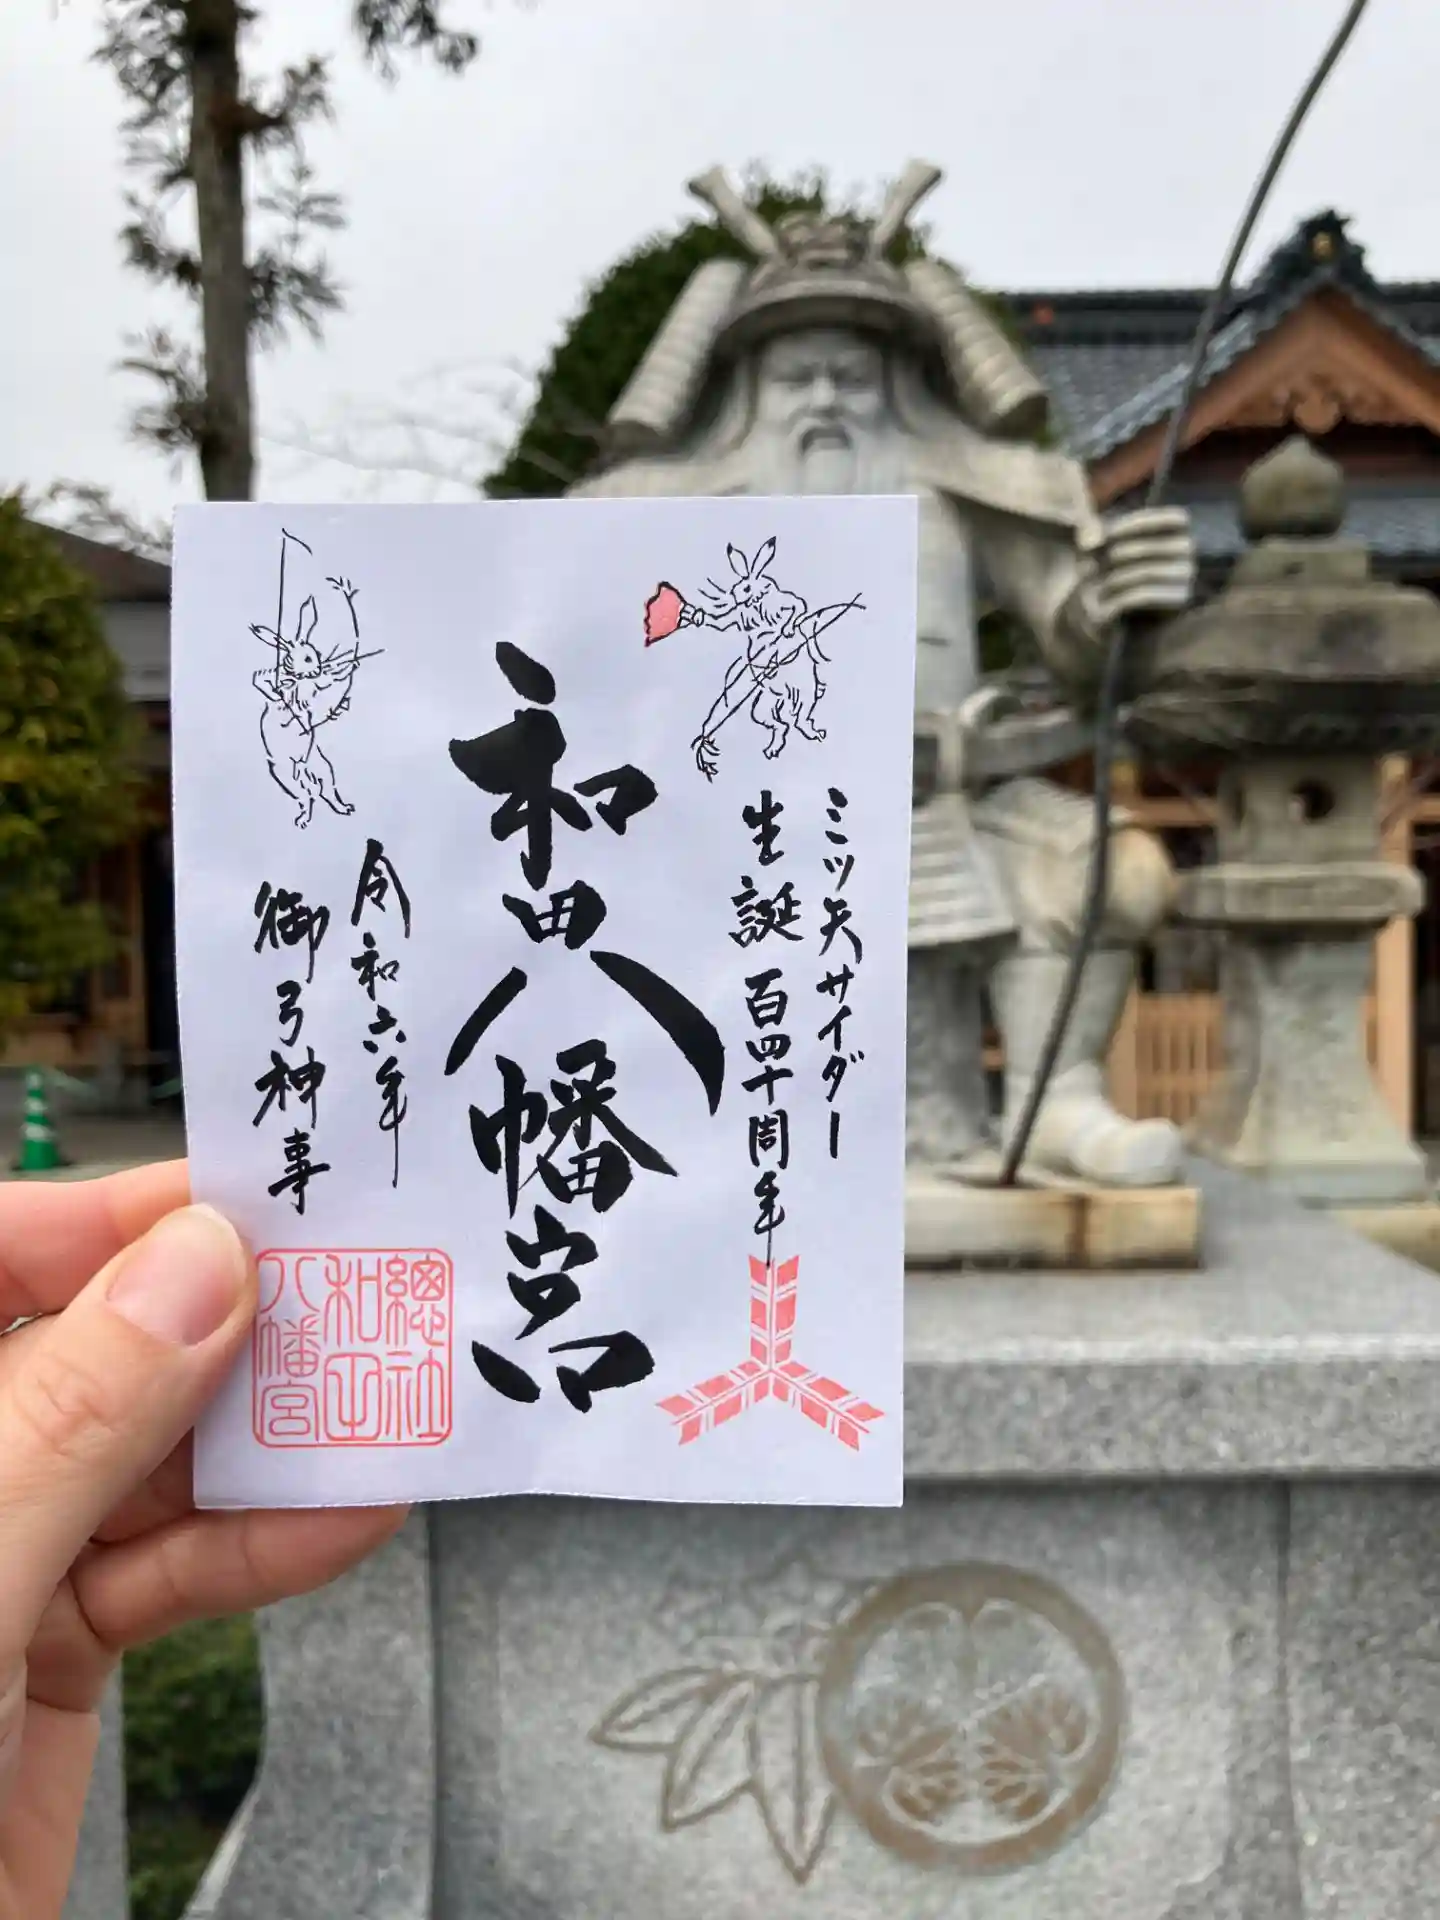 ミツ矢サイダー
生誕百四十周年
和田八幡宮
令和六年
御弓神事
總社
和田
八幡宮